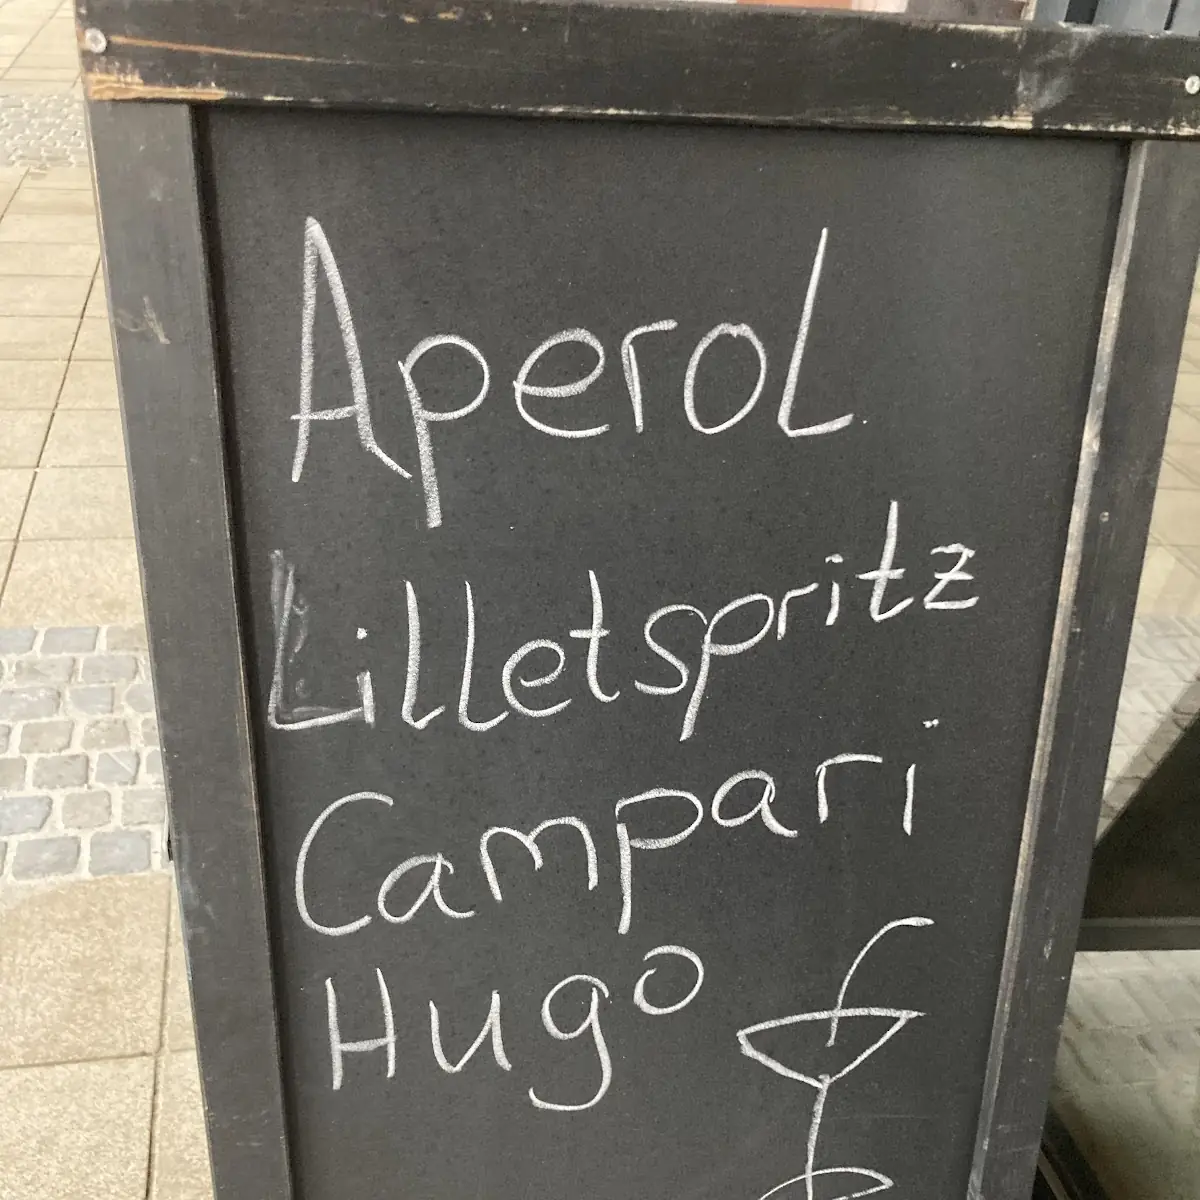 Aperol
Lilletspritz
Campari
Hugo